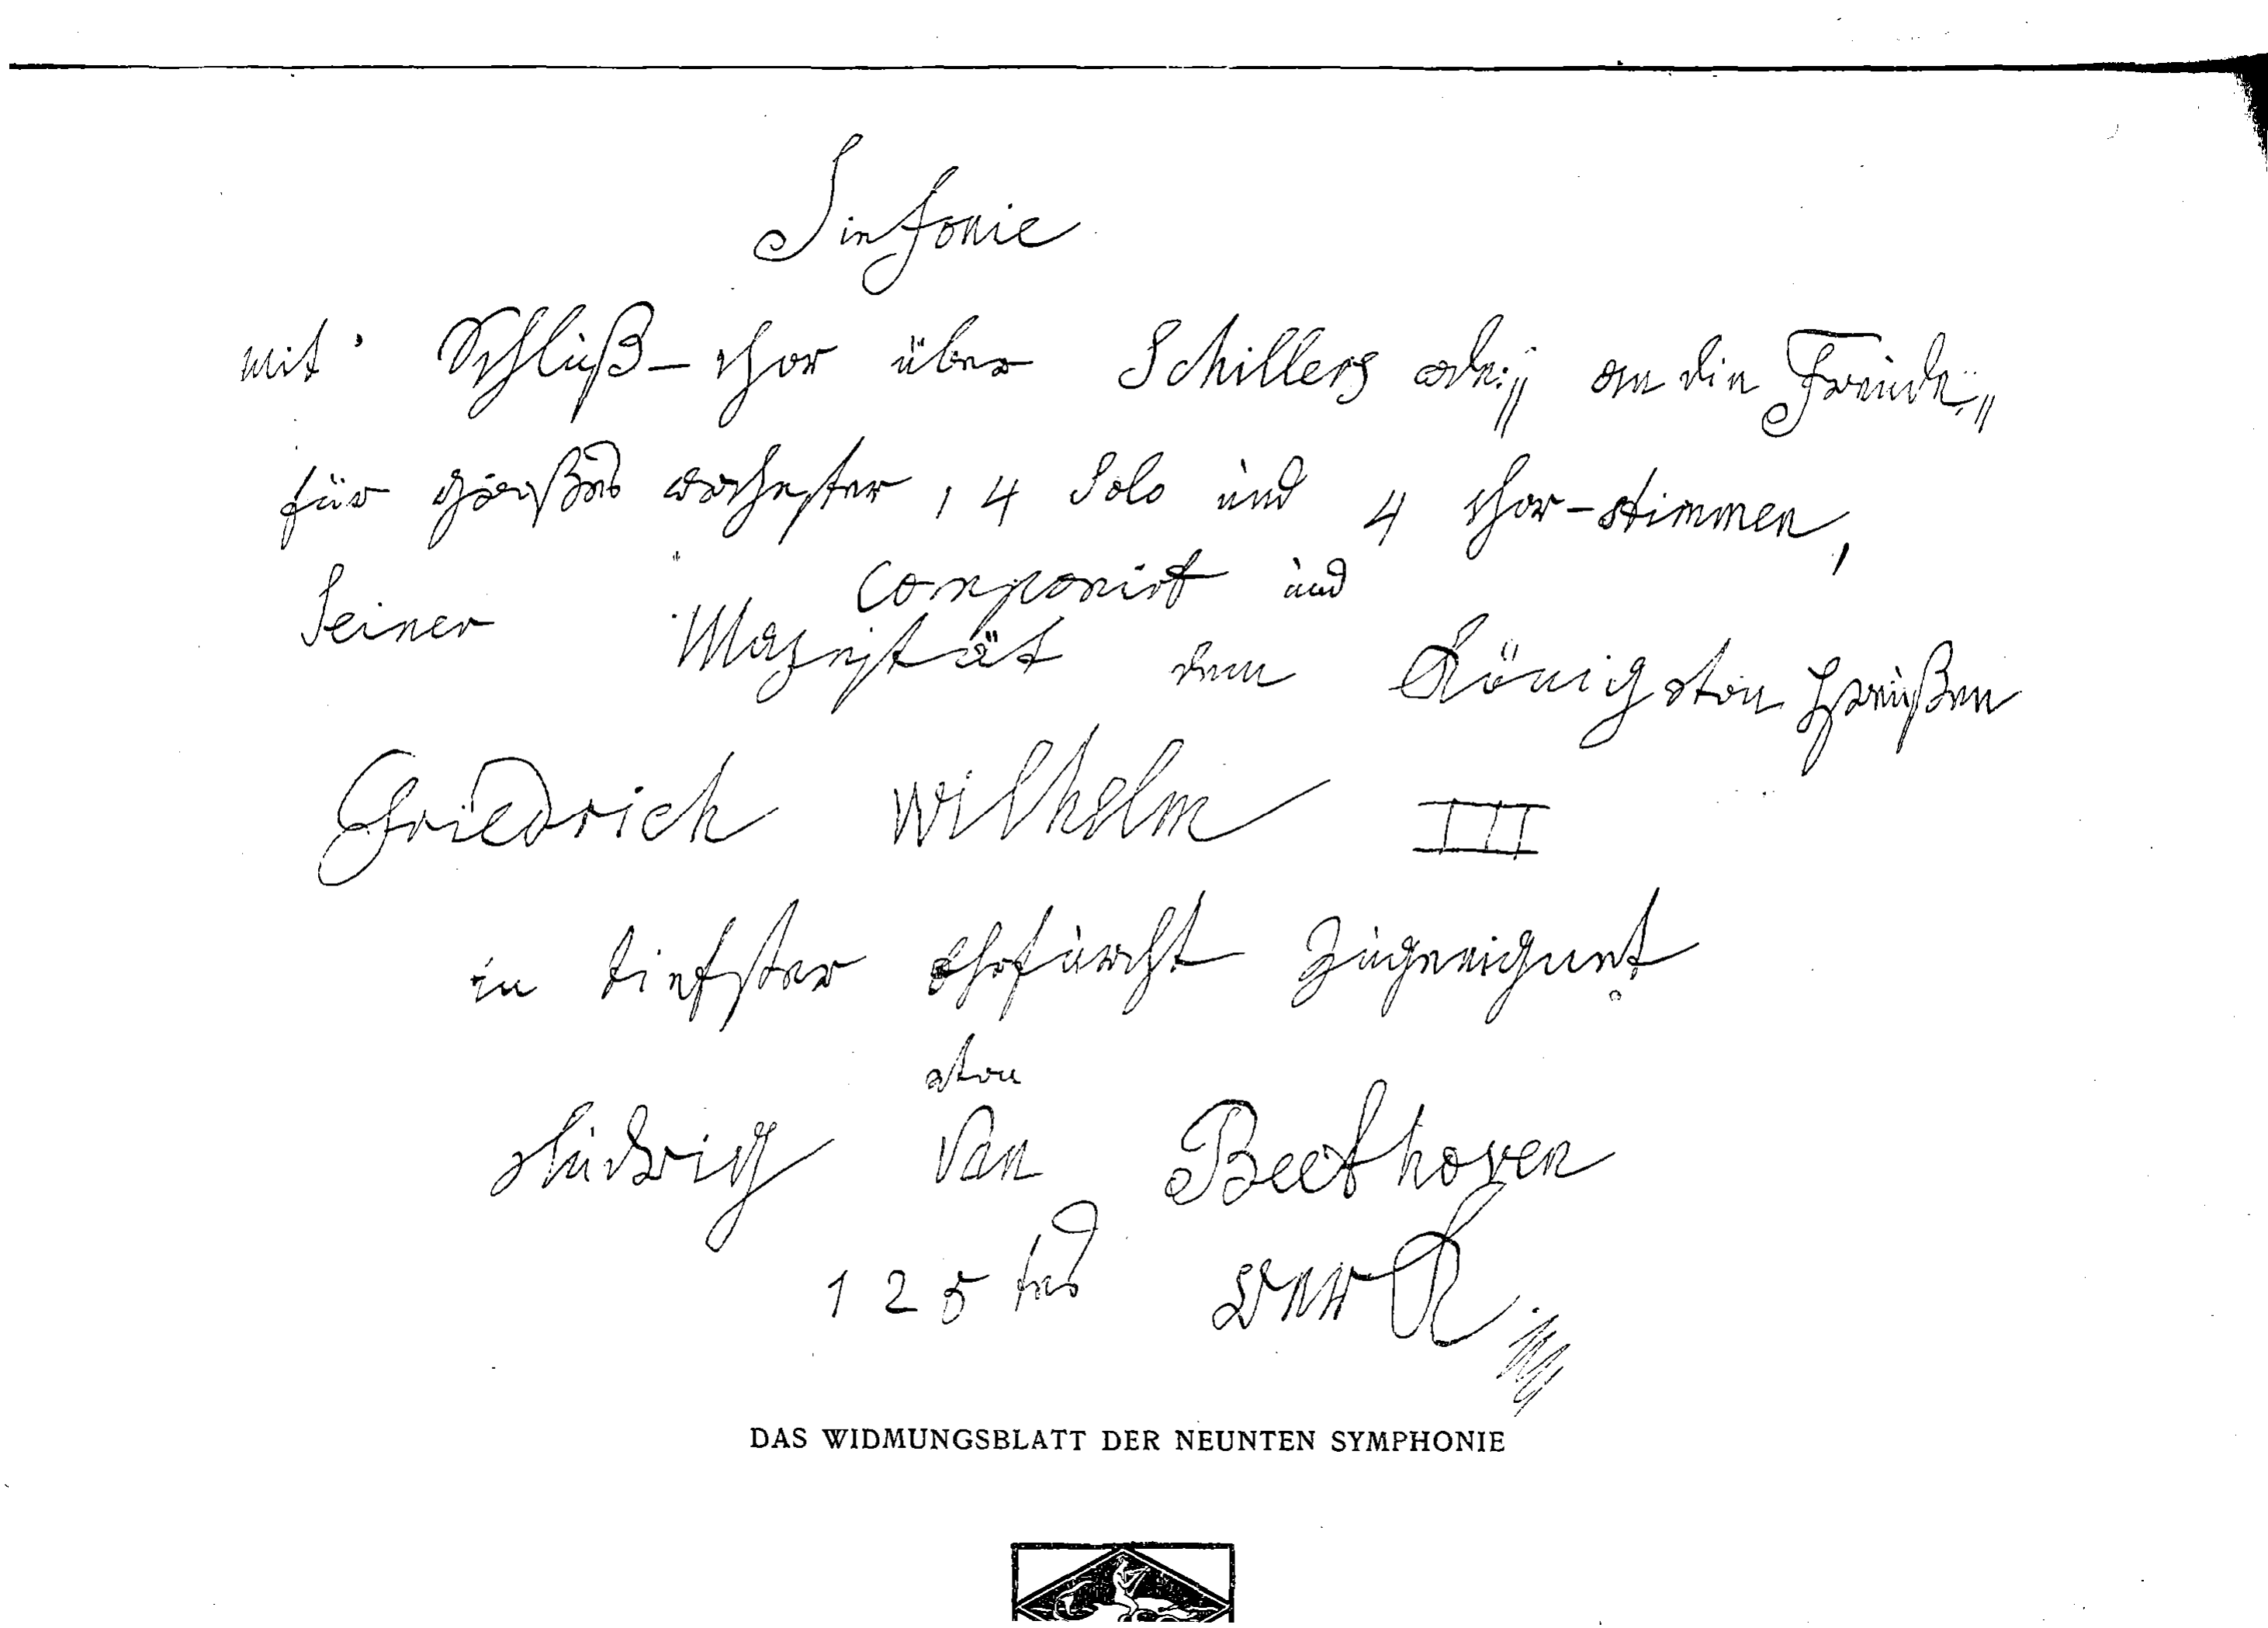 Sinfonie
mit Schluß-chor über Schillers ode: „an die Freude„
für großes orchester, 4 Solo und 4 chor-stimmen,
componirt und
Seiner Majestät dem König von Preußen
Friedrich Wilhelm III
in tiefster ehrfurcht zugeeignet
von
Ludwig van Beethoven
125tes Werk
DAS WIDMUNGSBLATT DER NEUNTEN SYMPHONIE